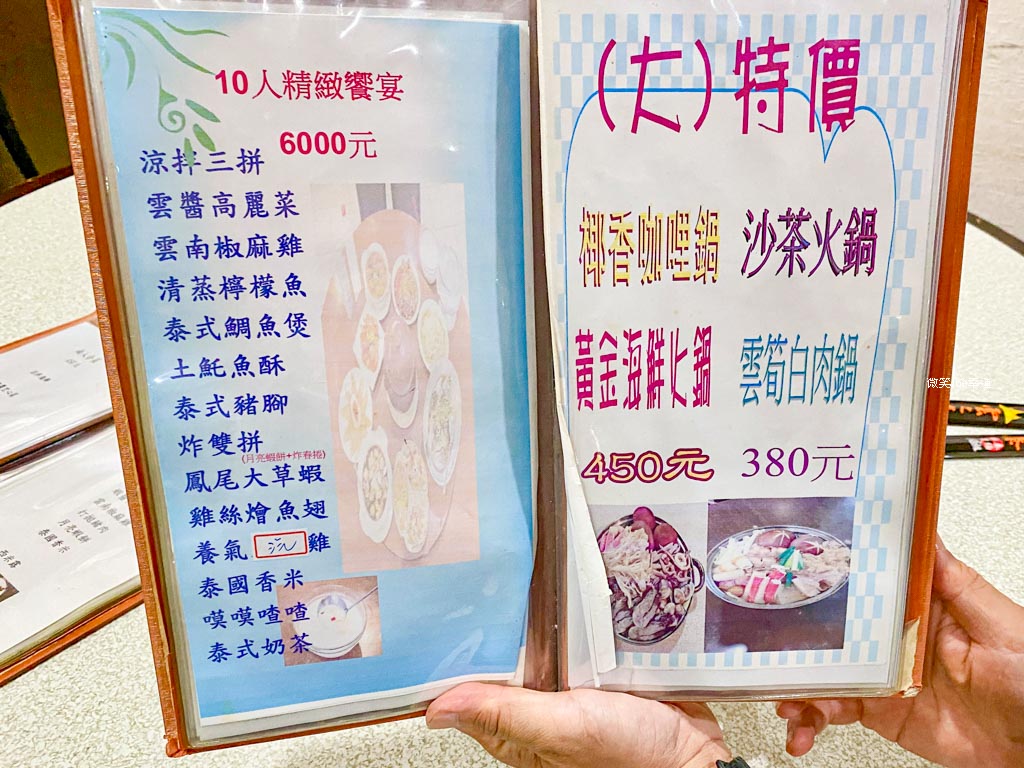 10人精緻饗宴
6000元
涼拌三拼
雲醬高麗菜
雲南椒麻雞
清蒸檸檬魚
泰式鯛魚煲
土魠魚酥
泰式豬腳
炸雙拼
(月亮蝦餅+炸春捲)
鳳尾大草蝦
雞絲燴魚翅
養氣汽雞
泰國香米
嗼嗼喳喳
泰式奶茶
(大)特價
椰香咖哩鍋
沙茶火鍋
黃金海鮮火鍋
雲筍白肉鍋
450元
380元
月亮蝦餅
泰國香米